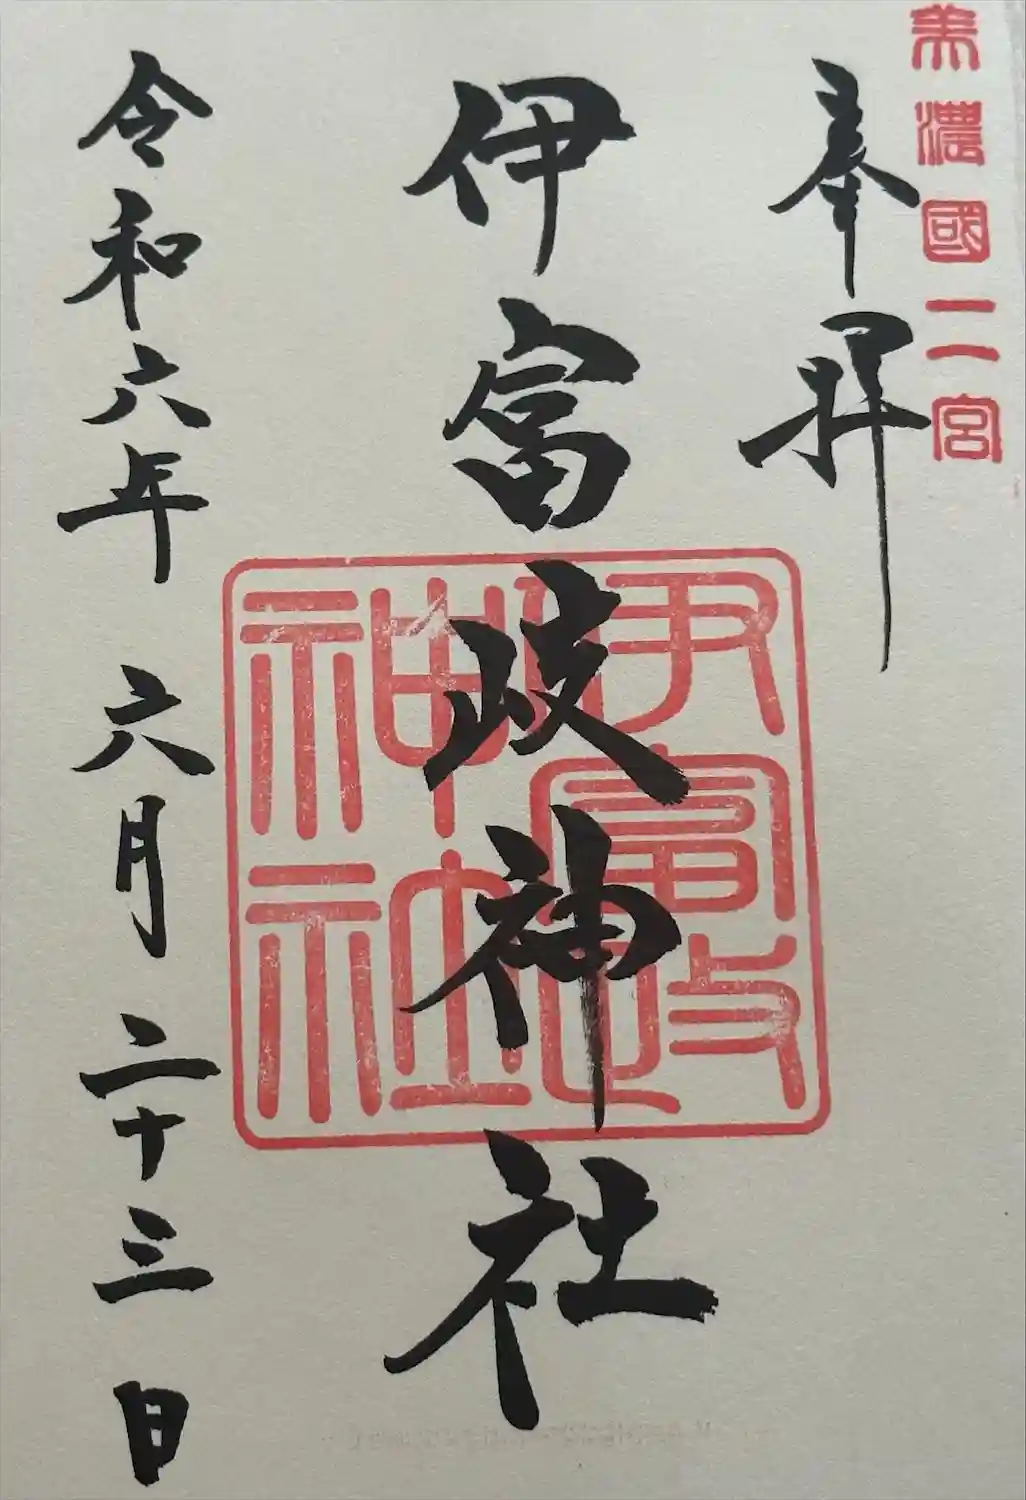 美濃國二宮
奉拝
伊富岐神社
伊富岐
神社
令和六年 六月 二十三日